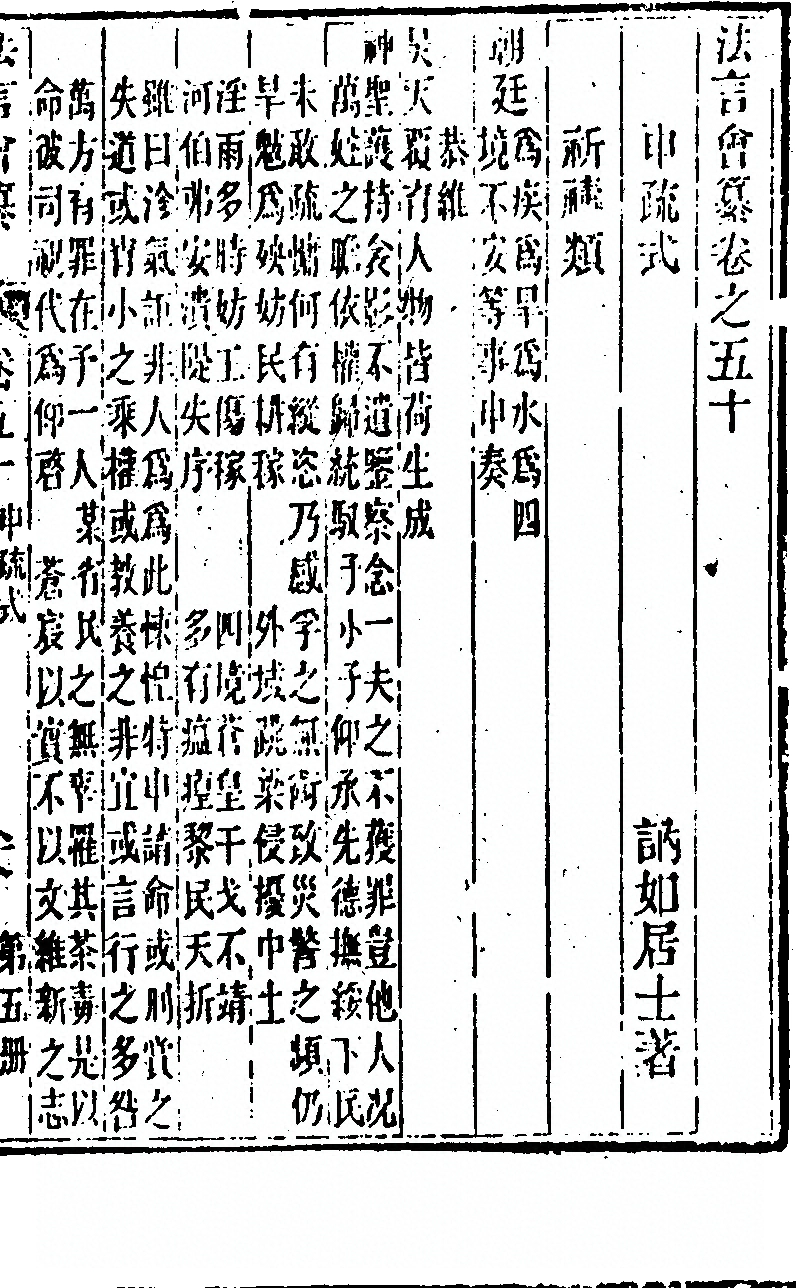 法言會纂卷之五十
申疏式 訥如居士著
祈禱類
朝廷為疾為旱為水為四
境不安等事申奏
恭維
昊天覆育人物皆荷生成
神聖護持衾影不遺鑒察念一夫之不獲罪豈他人況
萬姓之瞻依權歸統馭予小子仰承先德撫綏下民
未敢疏慵何有縱恣乃感孚之無術致災警之頻仍
旱魃為殃妨民耕稼 外域跳梁侵擾中土
淫雨多時妨工傷稼 四境蒼皇干戈不靖
河伯弗安潰隄失序 多有瘟瘴黎民夭折
雖曰沴氣詎非人為為此悚惶特申請命或刑賞之
失道或宵小之乘權或教養之非宜或言行之多咎
萬方有罪在予一人某省民之無辜罹其荼毒是以
命彼司祝代為仰啓 蒼宸以實不以文維新之志
法言會纂 卷五十 申疏式 第五册